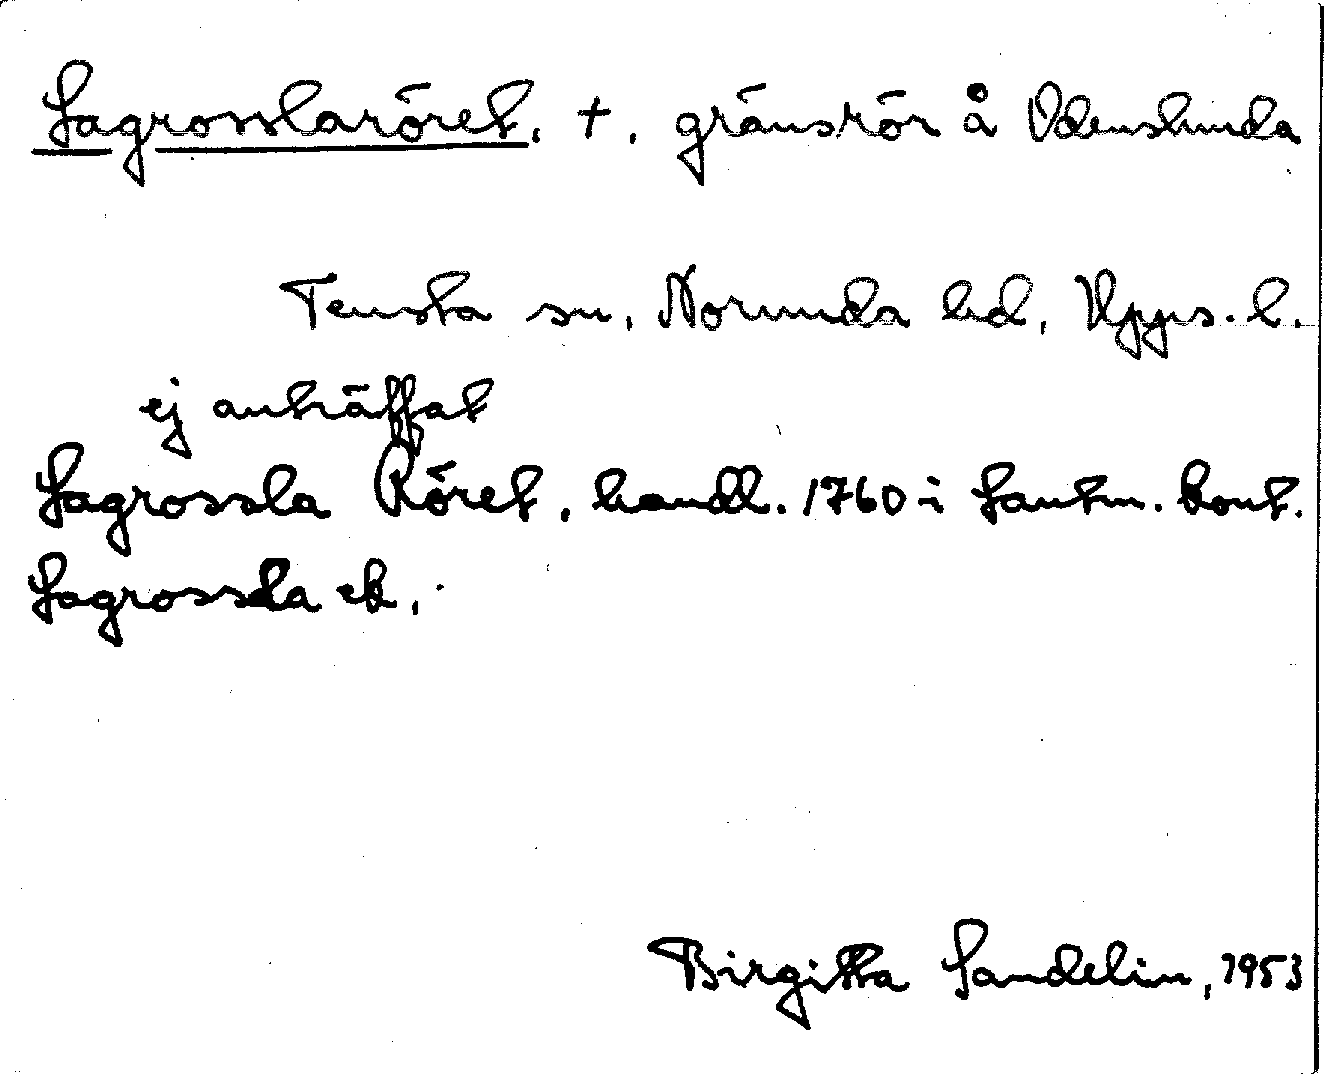 Sagrosslaröret, +, gränsrör å Odenslunda
Tensta sn, Norunda hd, Upps. l.
ej anträffat
Sagrossla Röret, handl. 1760 i Lantm. kont.
Sagrossla ek,
Birgitta Sandelin, 1953